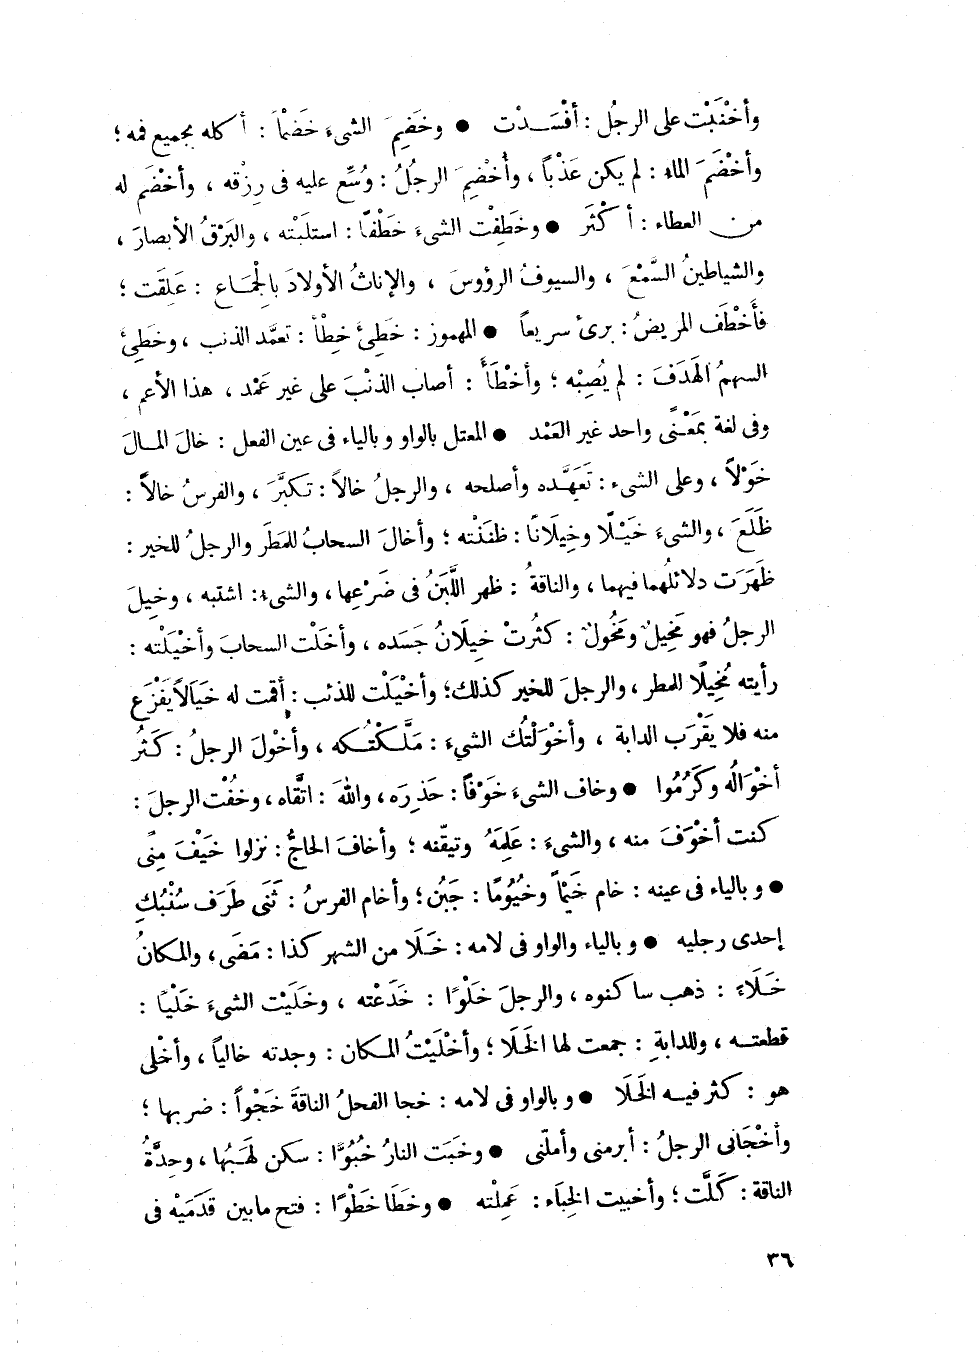 وأخْنَبْت على الرجلُ : أفْسَـــدْت ● وخَضِمَ الشىءَ خَضْماً : أكله بجميع فمه ؛
وأخْضَمَ الماء : لم يكن عَذْباً ، وأُخْضِمَ الرجلُ : وُسِّع عليه فى رِزْقه ، وأخْضَم له
من العطاء : أكْثَرَ ● وخَطِفْت الشىءَ خَطْفًا : استلَبْته ، والبَرْقُ الأبصارَ ،
والشياطينُ السَّمْعَ ، والسيوفُ الرؤوسَ ، والإناثُ الأولادَ بالْجِمَاعِ : عَلِقَت ؛
فأَخْطَف المريضُ : برئ سريعاً ● المهموز : خَطِئَ خِطْأً : تعمَّد الذنب ، وخَطِئَ
السهمُ الهَدَفَ : لم يُصِبْه ؛ وأخْطَأَ : أصاب الذنْبَ على غير عَمْد ، هذا الأعم ،
وفى لغة بمَعْنًى واحد غير العَمْد ● المعتل بالواو وبالياء فى عين الفعل : خالَ المـالَ
خَوْلاً ، وعلى الشىء : تَعَهَّده وأصلحه ، والرجلُ خالاً : تكبَّرَ ، والفرسُ خالاً :
ظَلَعَ ، والشىءَ خَيْـلًا وخِيلَانًا : ظنَنْته ؛ وأخالَ السحابُ للمَطَر والرجلُ للخير :
ظَهَرَت دلائلُهما فيهما ، والناقةُ : ظهر اللَّبَنُ فى ضَرْعِها ، والشىء : اشتبه ، وخِيلَ
الرجلُ فهو مَخِيلٌ ومَخُولٌ : كثُرتْ خِيلَانُ جَسَده ، وأخَلْت السحابَ وأخْيَلْته :
رأيته مُخِيلًا للمطر ، والرجلَ للخير كذلك؛ وأخْيَلْت للذئب : أقمت له خَيَالاً يَفْزَع
منه فلا يَقْرَب الدابة ، وأخْوَلْتُك الشىءَ : مَلَّكْتُكه ، وأخْولَ الرجلُ : كَثُر
أخْوَالُه وكَرُمُوا ● وخاف الشىءَ خَوْفاً : حَذِرَه ، واللهَ : اتَّقاه ، وخُفْت الرجلَ :
كنت أخْوَفَ منه ، والشىءَ : عَلِمَهُ وتيقّنه ؛ وأخافَ الحاجُّ : نزلوا خَيْفَ مِنًى
● وبالياء فى عينه : خام خَيْماً وخُيُومًا : جَبُن ؛ وأخام الفرسُ : ثَنَى طَرَف سُنْبُكِ
إحدى رجليه ● وبالياء والواو فى لامه : خَـلَا من الشهر كذا : مَضَى ، والمكانُ
خَـلَاءً : ذهب ساكنوه ، والرجلَ خَلْوًا : خَدَعْته ، وخَلَيْت الشىءَ خَلْيًا :
قطعتـــه ، وللدابةِ : جمعت لها الخَـلَا ؛ وأخْلَيْتُ المـكان : وجدته خالياً ، وأخْلى
هو : كثر فيـــه الخَـلَا ● وبالواو فى لامه : خجا الفحلُ الناقةَ خَجْواً : ضربها ؛
وأخْجَانى الرجلُ : أبرمنى وأملّنى ● وخَبَت النارُ خُبُوًّا : سكن لَهَـبُها ، وحِدَّةُ
الناقة : كَلَّت ؛ وأخبيت الخِبَاء : عَمِلْته ● وخَطَا خَطْوًا : فتح ما بين قَدَمَيْه فى
٣٦